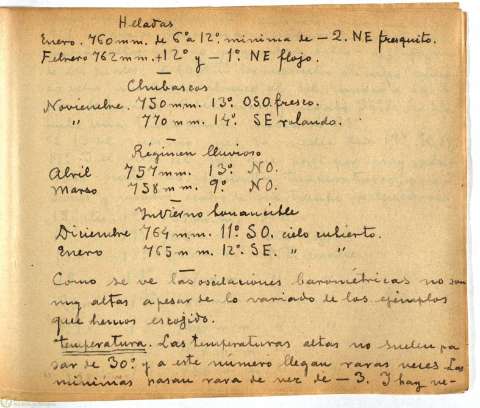 Heladas
Enero. 760 mm. de 6º a 12º. minima de - 2. NE fresquito.
Febrero 762 mm. + 12º y - 1º. NE flojo.
Chubascos
Noviembre. 750 mm. 13º. OSO. fresco.
" 770 mm. 14º. SE rolando.
Régimen lluvioso
Abril 757 mm. 13º NO.
Marzo 758 mm. 9º NO.
Invierno bonancible
Diciembre 764 mm. 11º SO. cielo cubierto.
Enero 765 mm. 12º. SE. " "
Como se ve las oscilaciones barométricas no son
muy altas apesar de lo variado de los ejemplos
que hemos escojido.
Temperatura. Las temperaturas altas no suelen pa
sar de 30º y a este número llegan raras veces Las
minimas pasan rara de vez de - 3. Y hay ve-